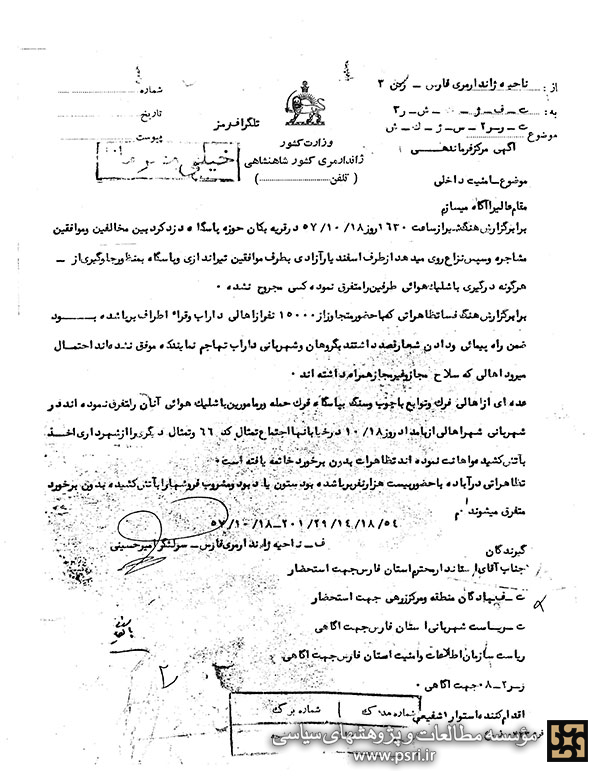 از: ناحیه ژاندارمری فارس – رکن ۳
شماره
به:
تاریخ
پیوست
موضوع
تلگراف رمز
وزارت کشور
ژاندارمری کشور شاهنشاهی
( تلفن )
آگهی مرکز فرماندهی
خیلی محرمانه
موضوع – امنیت داخلی
مقام عالی را آگاه میسازم
برابر گزارش هنگ شیراز ساعت ۱۶۳۰ روز ۵۷/۱۰/۱۸ در قریه بکان حوزه پاسگاه دزدکرد بین مخالفین و موافقین
مشاجره و سپس نزاع روی میدهد از طرف اسفندیار آزادی بطرف موافقین تیراندازی و پاسگاه بمنظور جلوگیری از –
هرگونه درگیری با شلیک هوائی طرفین را متفرق نموده کسی مجروح نشده ۰
برابر گزارش هنگ فسا تظاهراتی که با حضور متجاوز از ۱۵۰۰۰ نفر از اهالی داراب و قراء اطراف برپا شده بــود
ضمن راه پیمائی و دادن شعار قصد داشتند بگروهان و شهربانی داراب تهاجم نمایند که موفق نشده اند احتمال
میرود اهالی که سلاح مجاز و غیرمجاز همراه داشته اند ۰
عده ای از اهالی فرک و توابع با چوب و سنگ بپاسگاه فرک حمله ور مامورین با شلیک هوائی آنان را متفرق نموده اند در
شهربانی شهر اهالی از بامداد روز ۱۰/۱۸ در خیابانها اجتماع تمثال کد ۶۶ و تمثال دیگری را از شهرداری اخذ
بآتش کشیده و اهانت نموده اند تظاهرات بدون برخورد خاتمه یافته است
تظاهراتی در آباده با حضور بیست هزار نفر برپا شده بود ستون یاد بود و مشروب فروشیها را بآتش کشیده بدون برخورد
متفرق میشوند
۵۷/۱۰/۱۸–۲۰۱/۲۹/۱۴/۱۸/۵۴
ف – ناحیه ژاندارمری فارس – سرلشگر امیرحسینی
گیرندگان
جناب آقای استاندار محترم استان فارس جهت استحضار
ت – ف پادگان منطقه و مرکز زرهی جهت استحضار
ت – ریاست شهربانی استان فارس جهت آگاهی
ریاست سازمان اطلاعات و امنیت استان فارس جهت آگاهی
جهت آگاهی ۰
اقدام کننده استوار شفیعی
شماره مدرک
شماره برگ
مؤسسه مطالعات و پژوهشهای سیاسی
www.psri.ir